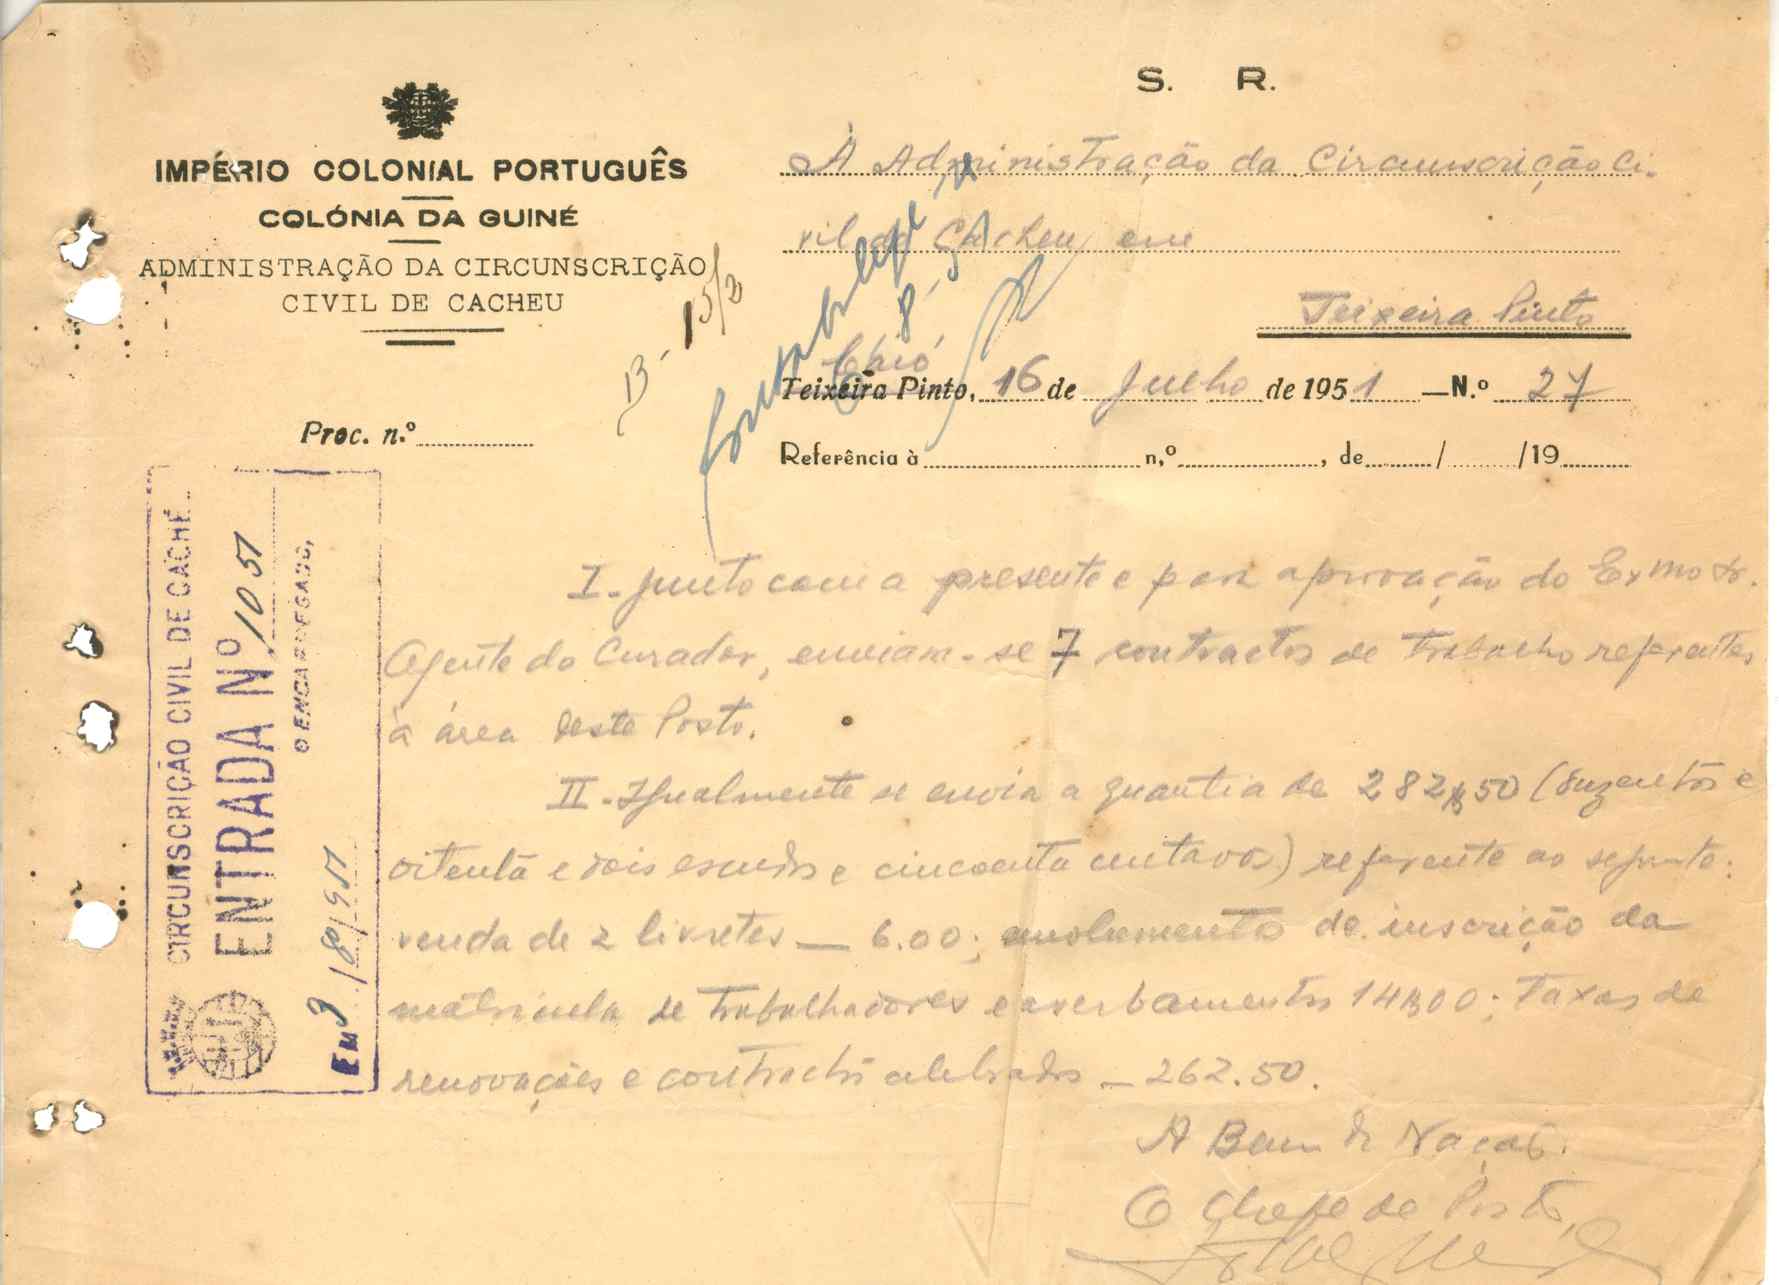 S. R.
IMPÉRIO COLONIAL PORTUGUÊS
COLÓNIA DA GUINÉ
ADMINISTRAÇÃO DA CIRCUNSCRIÇÃO
CIVIL DE CACHEU
À Administração da Circunscrição Ci-
vil de Cacheu em
Teixeira Pinto
13-15/2
8-51
Caió
Teixeira Pinto, 16 de Julho de 1951 —N.º 27
Proc. n.º
Referência à n,º , de / /19
CIRCUNSCRIÇÃO CIVIL DE CACHE
ENTRADA Nº 1051
O ENCARREGADO,
EM 9/8/951
I - Junto com a presente e para aprovação do Exmo Sr.
Agente do Curador, enviam-se 7 contractos de trabalho referentes
à área deste Posto.
II - Igualmente se envia a quantia de 282$50 (duzentos e
oitenta e dois escudos e cincoenta centavos) referente ao seguinte:
venda de 2 livretes — 6.00; emolumentos de inscrição da
matricula de trabalhadores e averbamentos 14$00; Taxas de
renovações e contractos celebrados — 262.50.
A Bem da Nação.
O Chefe de Posto,